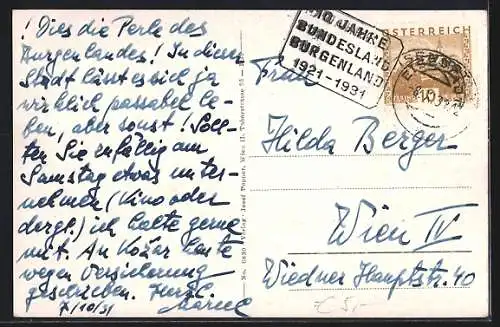 ! Dies die Perle des
Burgenlandes! In dieser
Stadt lässt es sich ja
wirklich passabel le-
ben, aber sonst! Soll-
ten Sie zufällig am
Samstag etwas unter-
nehmen (Kino oder
dergl.) ich halte gerne
mit. An Kožar Karte
wegen Versicherung
geschrieben. Herzl.
Marcel
7/10/31
10 JAHRE
BUNDESLAND
BURGENLAND
1921-1931
ÖSTERREICH
Frau
Hilda Berger
Wien IV
Wiedner Hauptstr. 40
€ 5,-
Verlag Josef Popper, Wien II.